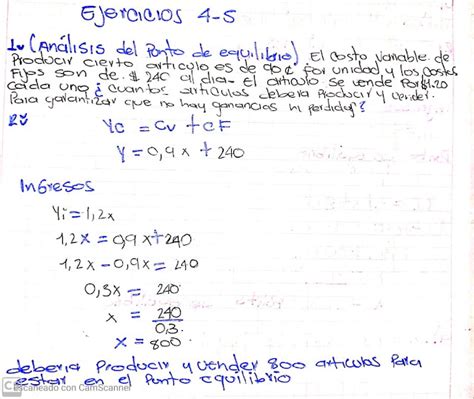 Ejercicios 4-5
1. (Análisis del Punto de equilibrio) El Costo Variable de
Producir cierto articulo es de 90 ¢ Por unidad y los Costos
Fijos son de $ 240 al dia. El articulo se vende Por $1.20
cada uno ¿ cuantos articulos deberia Producir y Vender.
Para garantizar que no hay ganancias ni perdidas?
Yc = Cv + CF
Y = 0,9x + 240
Ingresos
Yi = 1,2x
1,2x = 0,9x + 240
1,2x - 0,9x = 240
0,3x = 240.
x = 240
0,3.
x = 800.
deberia Producir y vender 800 articulos Para
estar en el Punto equilibrio
CS Escaneado con CamScanner